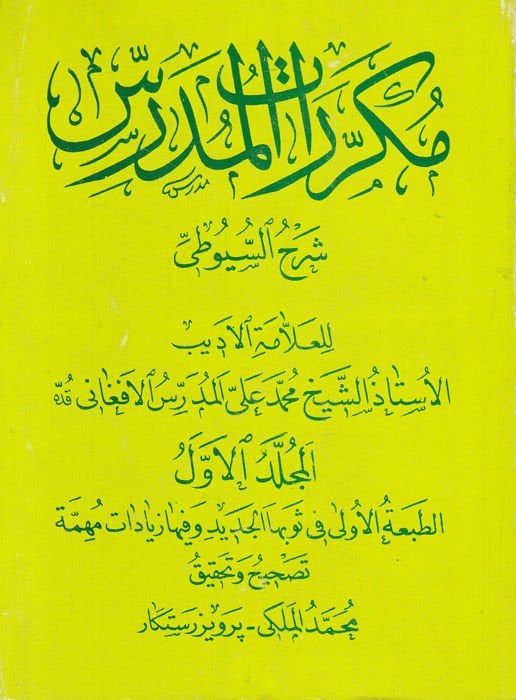 مُكَرِّرَاتُ الْمُدَرِّسِ
مدرس
شَرْحُ السُّيُوطِيِّ
لِلعَلاَّمَةِ الاَدِيبِ
الاُسْتَاذُ الشَّيْخِ مُحَمَّد عَلىِّ الْمُدَرِّسُ الاَفغَانى قُدّه
اَلمُجَلَّدُ الاَوَّلُ
الطَبعَةُ الأُولىٰ فى ثوبِهَا الجَدِيدِ وَفِيهَا زِيَادَات مُهِمَّة
تَصْحِيحُ وَتَحْقِيقُ
مُحَمَّدُ المَلَكى - پَرویز رَستَكار